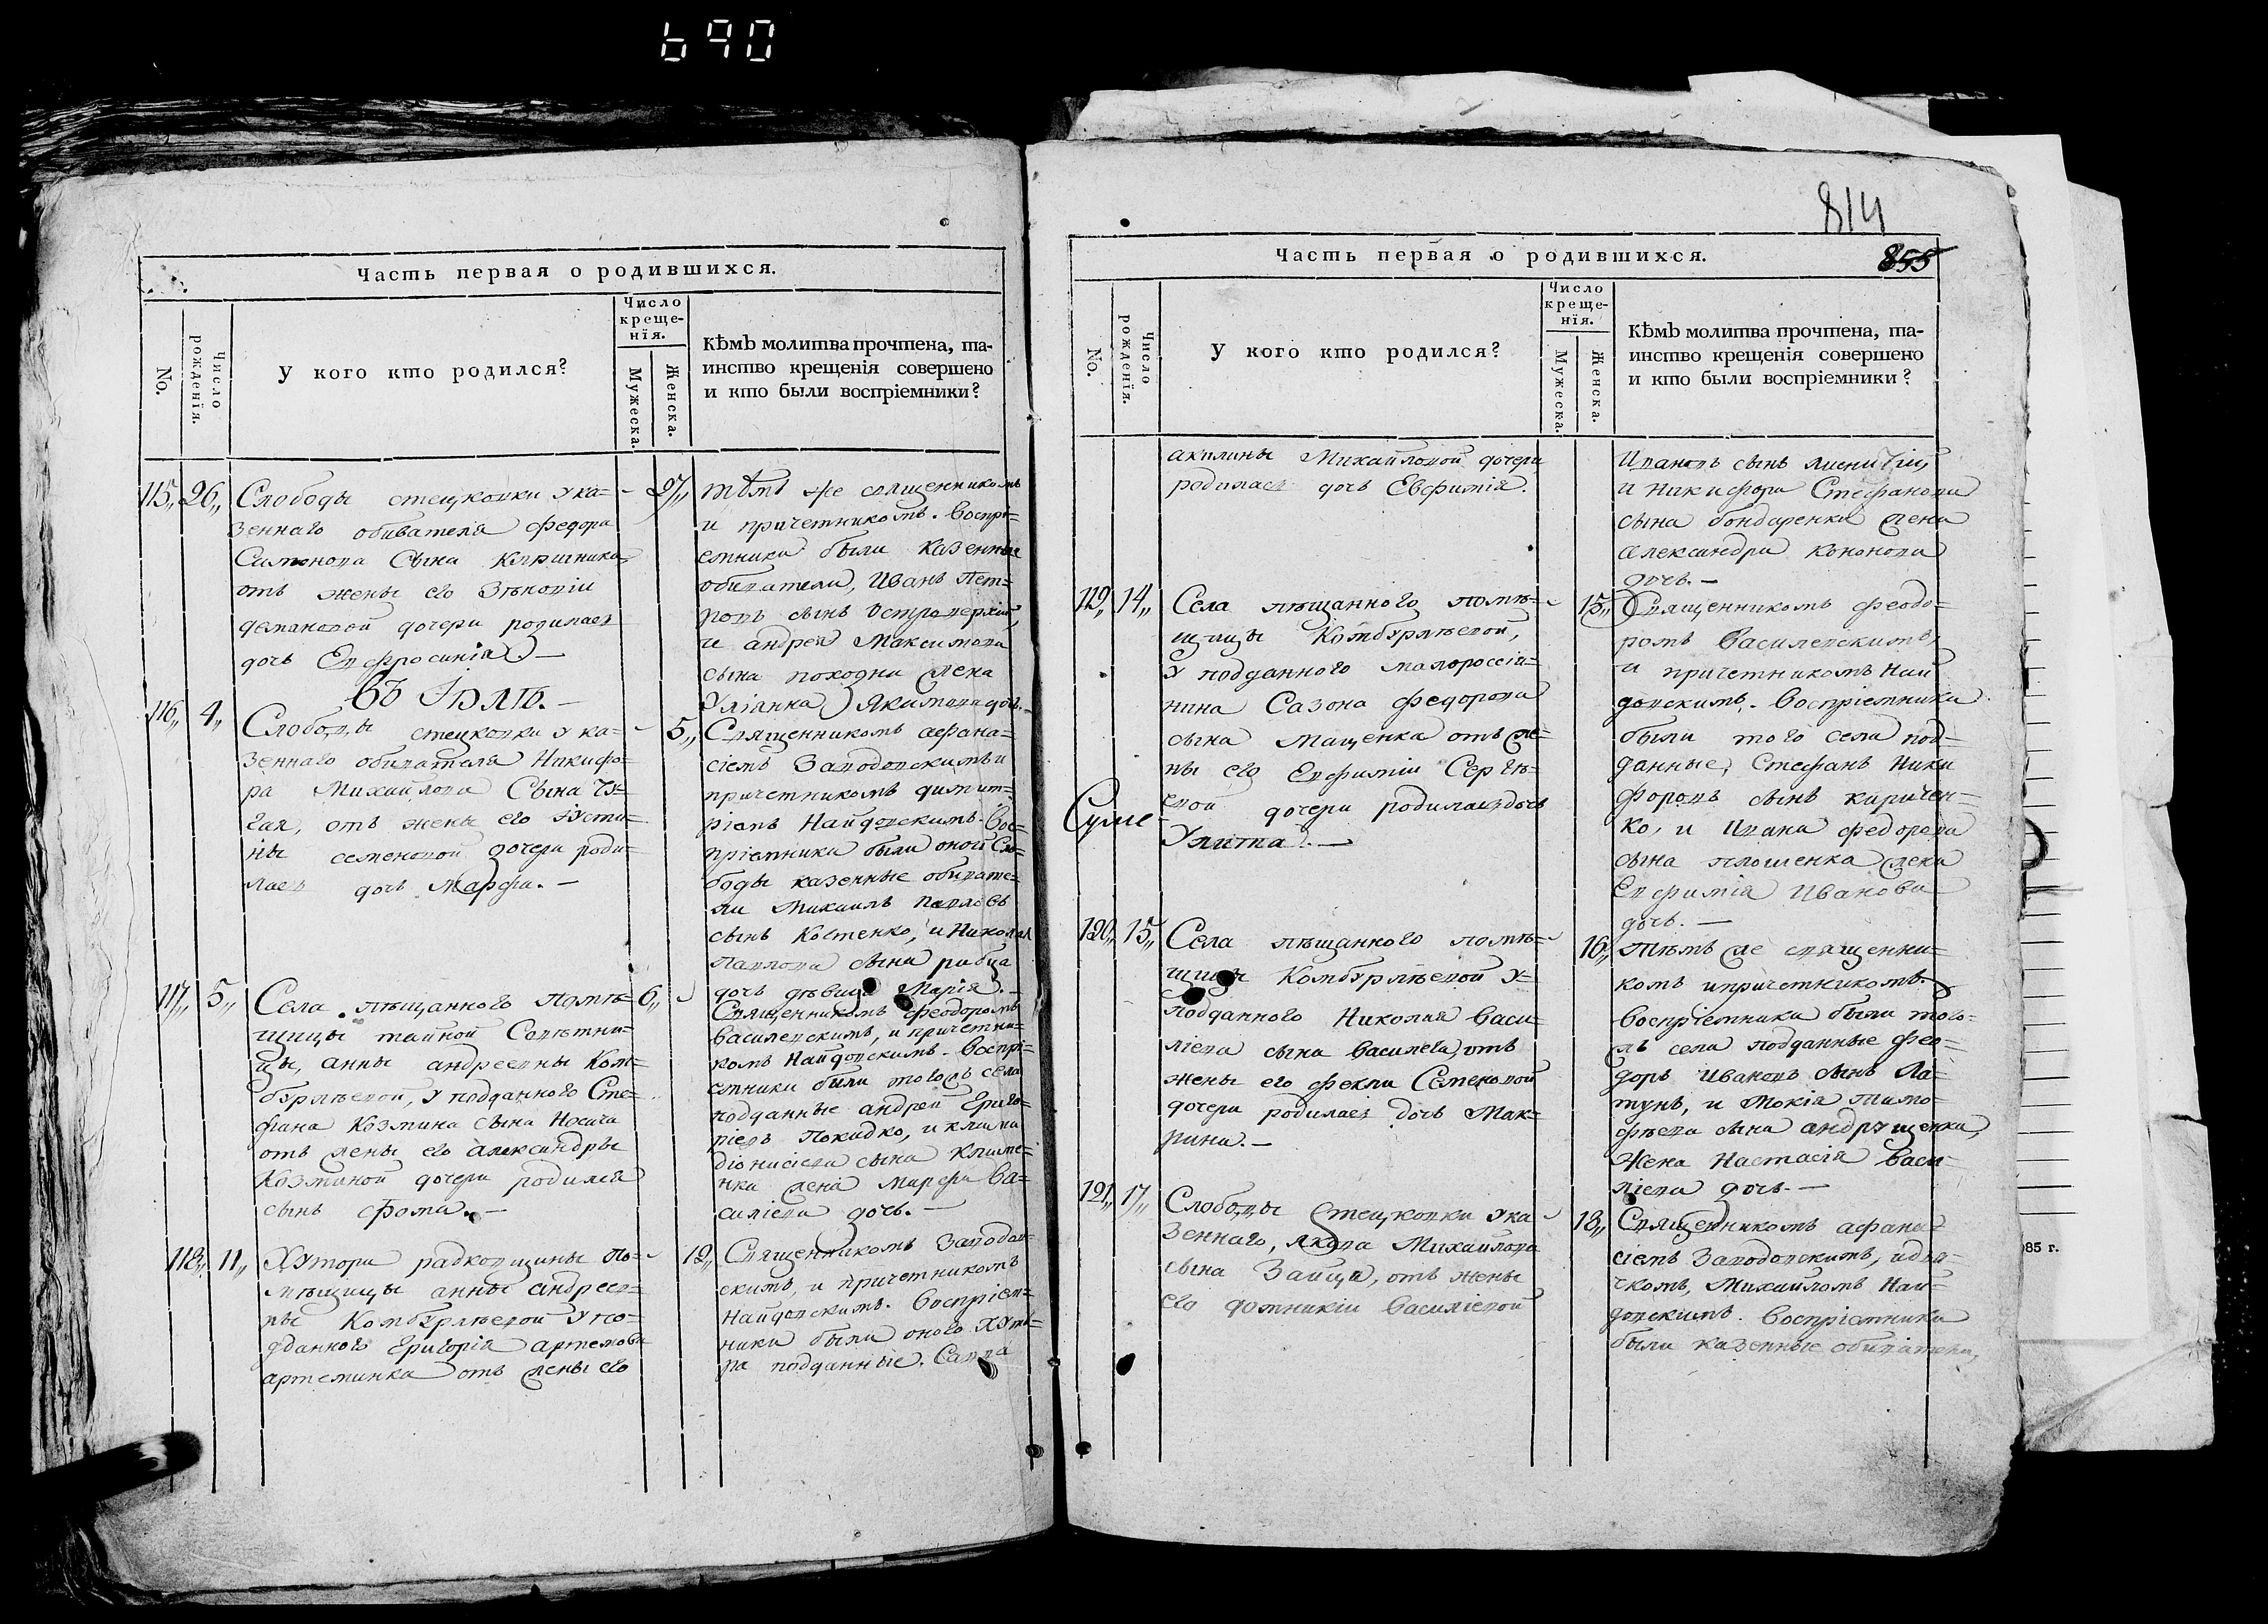 690
Часть первая о родившихся.
No.
Число рожденія.
У кого кто родился?
Число крещенія.
Мужеска.
Женска.
Кѣмъ молитва прочтена, та-
инство крещенія совершено
и кто были воспріемники?
115,, 26,, Слободы стецковки ука-
зеннаго обивателя Федора
Симонова Сына
отъ жены его Зѣновіи
Демановой дочери родилась
дочь Евфросинія
27,, тѣмъ же священникомъ
и причетникомъ. Воспрі-
емники были казенные
обиватели, Иванъ Пет-
ровъ сынъ
и андрея Максимова
сына походни жена
Уліанка Якимова дочь.
Въ Іюлѣ.
116,, 4,, Слободы стецковки ука-
зеннаго обивателя Никифо-
ра Михайлова Сына Чу-
гая, отъ жены его Іусти-
ны семеновой дочери роди-
лась дочь Марфа.
5,, Священникомъ афана-
сіемъ Заводовскимъ и
причетникомъ димит-
ріемъ Найдовскимъ. Вос-
пріемники были оной Сло-
боды казенные обивате-
ли Михаилъ Павловъ
сынъ Костенко, и Николая
Павлова сына рибца
дочь дѣвица Марія.
117,, 5,, Села пѣщанного помѣ-
щицы тайной Совѣтни-
цы, анны андреевны Ком-
бурлѣевой, у подданного Сте-
фана Козмина сына Носача
отъ жены его александры
Козминой дочери родился
сынъ Фома.
6,, Священникомъ Феодоромъ
Василевскимъ, и причетни-
комъ Найдовскимъ. Воспрі-
емники были тогожъ села
подданные андрей Григо-
ріевъ Покидко, и клима
діонисіева сына Климе-
нка жена Марфа Ва-
силіева дочь.
118,, 11,, Хутора радковщины по-
мѣщицы анны андреев-
ны Комбурлѣевой у по-
дданного Григорія артемова
артеминка отъ жены его
12,, Священникомъ Заводов-
скимъ, и причетникомъ
Найдовскимъ. Воспріем-
ники были оного Хуто-
ра подданные. Савва
814
855
Часть первая о родившихся.
No.
Число рожденія.
У кого кто родился?
Число крещенія.
Мужеска.
Женска.
Кѣмъ молитва прочтена, та-
инство крещенія совершено
и кто были воспріемники?
акилины Михайловой дочери
родилась дочь Евфимія.
Ивановъ сынъ
и Никифора Стефанова
сына бондаренка жена
александра Кононова
дочь.
119,, 14,, Села пѣщанного помѣ-
щицы Комбурлѣевой,
у подданного малороссія-
нина Сазона Федорова
сына Мащенка отъ же-
ны его Евфиміи Сергѣ-
евой дочери родилась дочь
Улита.
15,, Священникомъ Феодо-
ромъ Василевскимъ,
и причетникомъ Най
довскимъ. Воспріемники
были того села под-
данные, Стефанъ Ники
форовъ сынъ киричен-
ко, и Ивана Федорова
сына плошенка жена
Евфимія Иванова
дочь.
Суме
120,, 15,, Села пѣщанного помѣ-
щицы Комбурлѣевой у
подданного Николая Васи-
ліева сына Василега, отъ
жены его Феклы Семеновой
дочери родилась дочь Мак-
рина.
16,, Тѣмъ же священни-
комъ и причетникомъ.
Воспріемники были того-
жъ села подданные Фео-
доръ Ивановъ сынъ Ла-
тунъ, и Мокія Тимо-
фѣева сына андрущенка,
Жена Настасія Васи-
ліева дочь.
121,, 17,, Слободы Стецковки ука
зеннаго, Якова Михайлова
сына Зайца, отъ жены
его домникіи Василіевой
18,, Священникомъ афана
сіемъ Заводовскимъ, и дья-
чкомъ, Михайломъ Най-
довскимъ. Воспріемники
были казенные обиватели,
985 г.